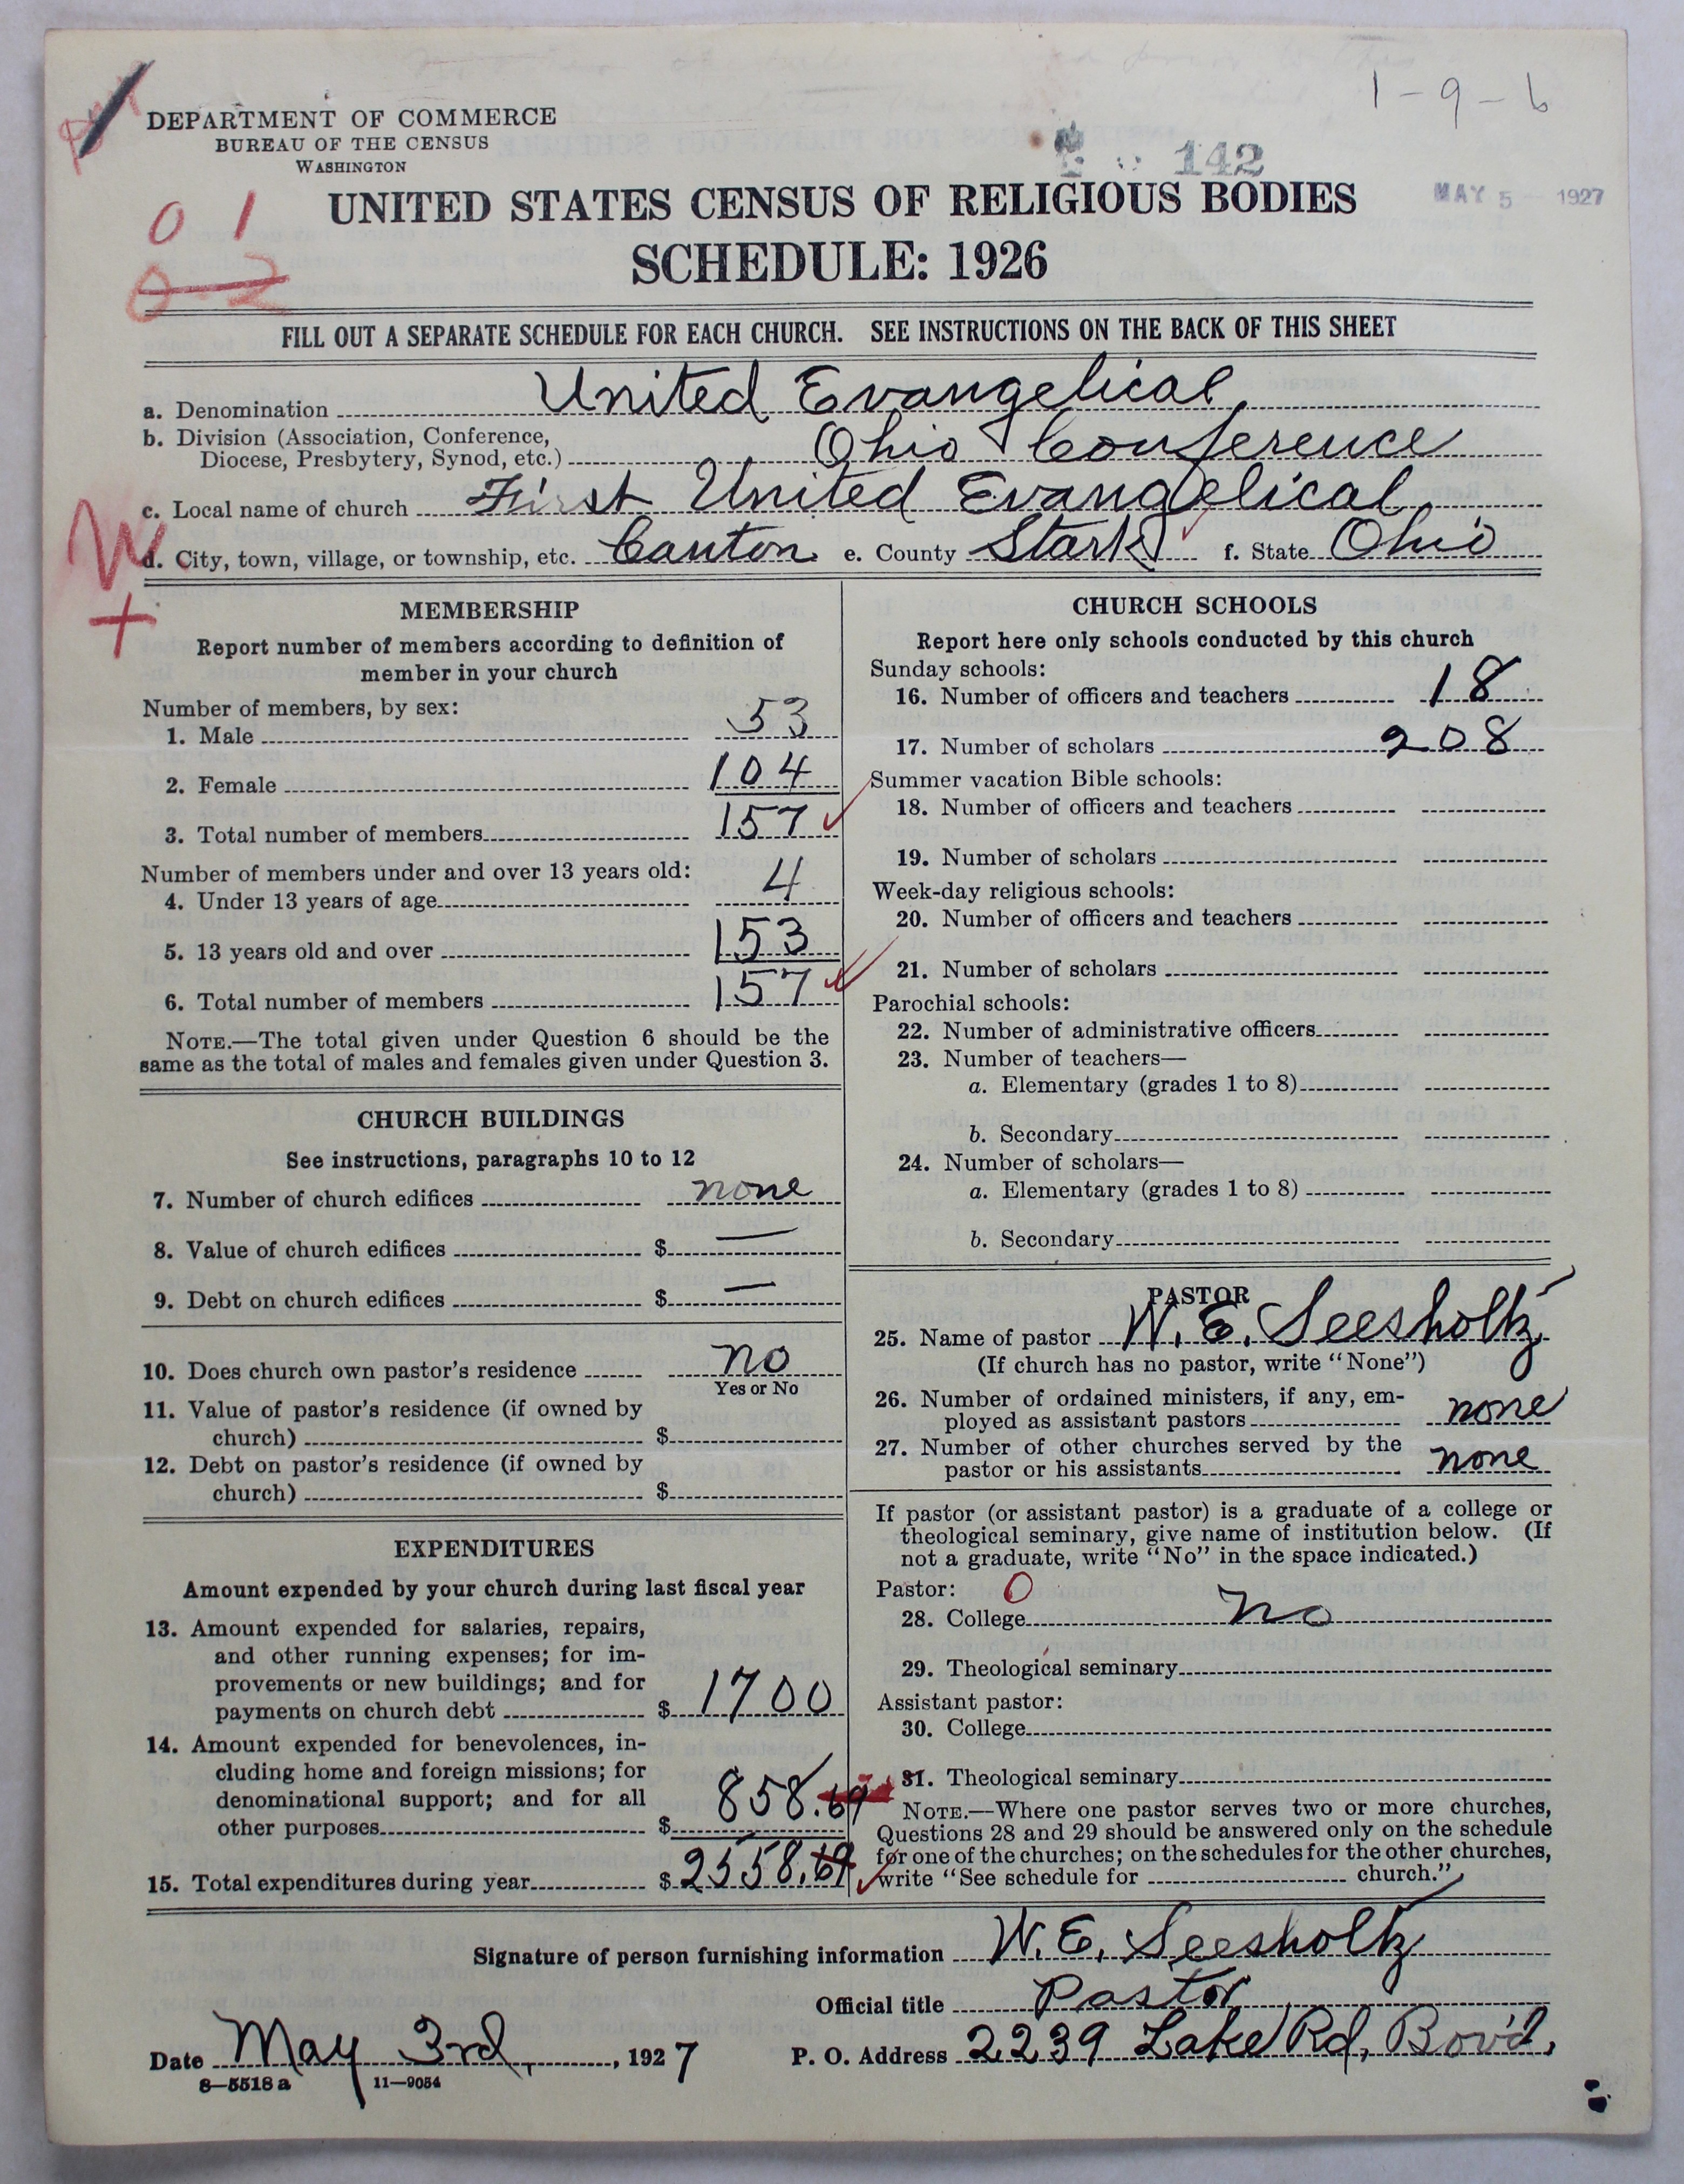 1-9-6
DEPARTMENT OF COMMERCE
BUREAU OF THE CENSUS
WASHINGTON
142
MAY 5 1927
UNITED STATES CENSUS OF RELIGIOUS BODIES
SCHEDULE: 1926
0 1
0-2
FILL OUT A SEPARATE SCHEDULE FOR EACH CHURCH. SEE INSTRUCTIONS ON THE BACK OF THIS SHEET
a. Denomination United Evangelical
b. Division (Association, Conference,
Diocese, Presbytery, Synod, etc.) Ohio Conference
c. Local name of church First United Evangelical
W
d. City, town, village, or township, etc. Canton e. County Stark f. State Ohio
+
MEMBERSHIP
Report number of members according to definition of
member in your church
Number of members, by sex:
1. Male 53
2. Female 104
3. Total number of members 157
Number of members under and over 13 years old:
4. Under 13 years of age 4
5. 13 years old and over 153
6. Total number of members 157
NOTE.—The total given under Question 6 should be the
same as the total of males and females given under Question 3.
CHURCH BUILDINGS
See instructions, paragraphs 10 to 12
7. Number of church edifices none
8. Value of church edifices $ —
9. Debt on church edifices $ —
10. Does church own pastor's residence no
Yes or No
11. Value of pastor's residence (if owned by
church) $
12. Debt on pastor's residence (if owned by
church) $
EXPENDITURES
Amount expended by your church during last fiscal year
13. Amount expended for salaries, repairs,
and other running expenses; for im-
provements or new buildings; and for
payments on church debt $ 1700
14. Amount expended for benevolences, in-
cluding home and foreign missions; for
denominational support; and for all
other purposes $ 858.69
15. Total expenditures during year $ 2558.69
CHURCH SCHOOLS
Report here only schools conducted by this church
Sunday schools:
16. Number of officers and teachers 18
17. Number of scholars 208
Summer vacation Bible schools:
18. Number of officers and teachers
19. Number of scholars
Week-day religious schools:
20. Number of officers and teachers
21. Number of scholars
Parochial schools:
22. Number of administrative officers
23. Number of teachers—
a. Elementary (grades 1 to 8)
b. Secondary
24. Number of scholars—
a. Elementary (grades 1 to 8)
b. Secondary
PASTOR
25. Name of pastor W. E. Seesholtz
(If church has no pastor, write "None")
26. Number of ordained ministers, if any, em-
ployed as assistant pastors none
27. Number of other churches served by the
pastor or his assistants none
If pastor (or assistant pastor) is a graduate of a college or
theological seminary, give name of institution below. (If
not a graduate, write "No" in the space indicated.)
Pastor: 0
28. College no
29. Theological seminary
Assistant pastor:
30. College
31. Theological seminary
NOTE.—Where one pastor serves two or more churches,
Questions 28 and 29 should be answered only on the schedule
for one of the churches; on the schedules for the other churches,
write "See schedule for church."
Signature of person furnishing information W. E. Seesholtz
Official title Pastor
Date May 3rd, 1927 P. O. Address 2239 Lake Rd,
8—5518 a 11—9054